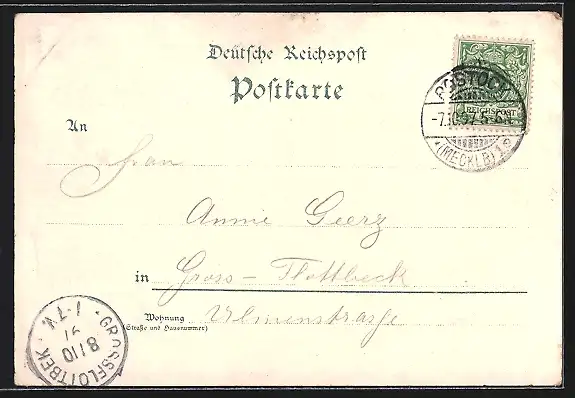 Deutsche Reichspost
Postkarte
REICHSPOST
ROSTOCK
-7.10.97.5-6N.
*(MECKLB)1c
An
Frau
Annie Geerz
in Gross-Flottbeck
Wohnung Ulmenstrasse
(Straße und Hausnummer)
GROSSFLOTTBEK
8/10
97